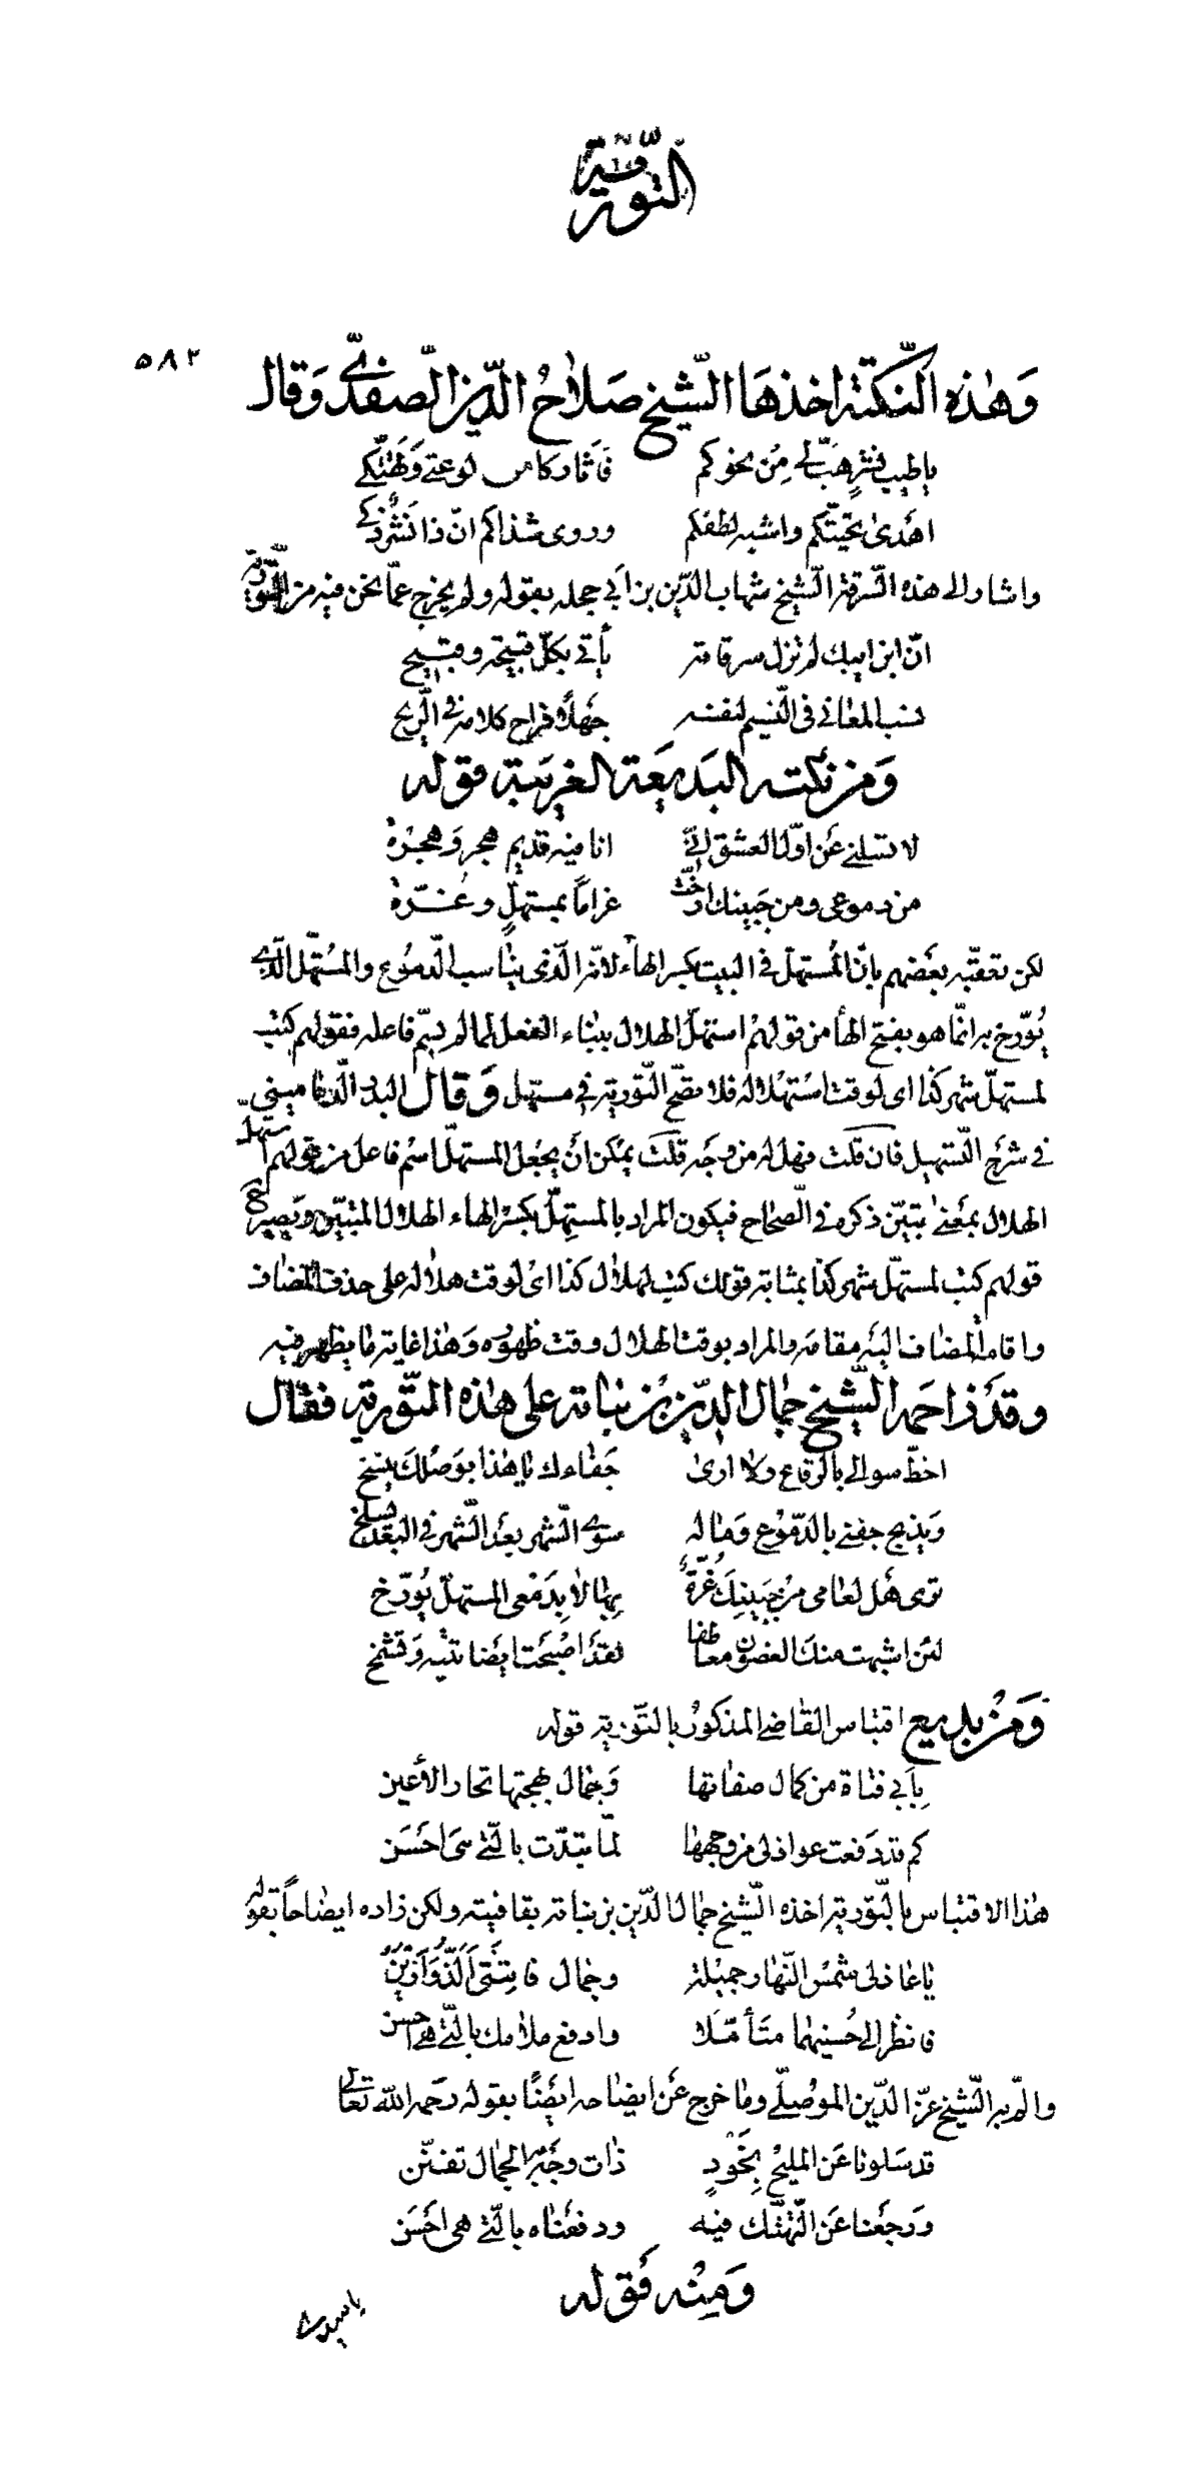 التّورية
٥٨٢
وَهٰذه النّكتة اخذهَا الشّيخ صَلاٰحُ الدّين الصّفدّي وَقال
يا طيب نشرٍ هبّ لي مِن نحوكم فَاثار كامن لوعتي وَتهتّكي
اهدىٰ تحيّتكم واشبه لطفكم وروى شذاكم انّ ذا نَشرٌ ذكي
واشار الى هذه السّرقة الشّيخ شهاب الدّين بن ابي حجله بقوله ولم يخرج عمّا نحن فيه من التّورية
انّ ابن ايبك لم تزل سرقاته يأتي بكلّ قبيحة وقبيح
نسب المعاني في النّسيم لنفسه جَهلاً فراح كلامه في الرّيح
وَمن نكته البَديعَة الغريبَة قوله
لا تسلني عَن اوّل العشق انّي انا فيه قديم هجرٍ وَهجرَة
من دموعي ومن جَبينك ارّخت غرامًا بمستهلٍّ وغُرّة
لكن تعقّبه بعَضهم بانّ المُستهلّ في البيت بكسر الهاء لانّه الّذى يناسب الدّموُع والمُستهّل الّذي
يُؤرّخ به انّما هو بفتح الهأ من قولهمْ استهلّ الهلال ببناء الفعل لما لم يسمّ فاعله فقولهم كتب
لمستهلّ شهر كذا اى لوقت استهلاله فلا تصّح التّورية في مستهل وَقال البدر الدّمامينى
في شرح التّسهيل فان قلت فهل له من وجه قلت يمكن انَ يجعل المستهلّ اسْم فاعل من قولهم استهلّ
الهلال بمعنىٰ تبيّن ذكره في الصّحاح فيكون المراد بالمستهِلّ بكسْر الهاء الهلال المتبيّن ويَصير مع
قولهم كتب لمستهلّ شهر كذا بمثابة قولك كتب لهلال كذا اىْ لوقت هلاله على حذف المضاف
واقامة المضاف اليَه مقامه والمراد بوقت الهلال وقت ظهوره وَهٰذا غاية ما يظهر فيه
وقدَ زاحمَ الشّيخ جمال الدّين بْن نباتة على هٰذه التّورية فقال
اخطّ سوالي بالرقاع ولا ارىٰ جَفاءك يا هٰذا بوَصْلك ينسخ
وَيذبح جفني بالدّموُع وَماله سوى الشّهر بعدَ الشّهر في البعد يسلخ
ترى هَل لعامى من جَبينِكَ غُرّةٌ بها لا بِدَمعى المستهلّ يُؤرّخ
لئن اشبهت منك الغصون معاطفا لقدَ اصْبَحت ايضَا تتيْه وَتشمخ
وَمنْ بديع اقتباس القاضي المذكورُ بالتّورية قوله
بِأبي فتاة من كمال صفاتها وَجمال بهجتها تحار الأعين
كم قد دَفعت عواذلى من وجهها لمّا تبدّت بالّتي هيَ احسَن
هٰذا الاقتباس بالتّورية اخذه الشّيخ جمال الدّين بن نباتة بقافيته ولكن زاده ايضاحاً بقوله
يا عاذلى شمسْ النّهار جميْلة وجمال فاتنتي اَلَذُّ وَاَزْيَنُ
فانظر الى حُسنيهما متَأمّلا وادفع ملامك بالّتي هي احسن
والمّ به الشّيخ عزّ الدّين الموُصلّي وما خرج عَن ايضاحه ايضًا بقوله رحمه اللّٰه تعالى
قد سَلونا عَن المليحْ بِخَوْدٍ ذات وجَهٍ به الجمال تفنّن
وَرجعَنا عَن التّهتّك فيه ودفعَناه بالّتي هى احَسَن
وَمنْه قوله
يا سيدى